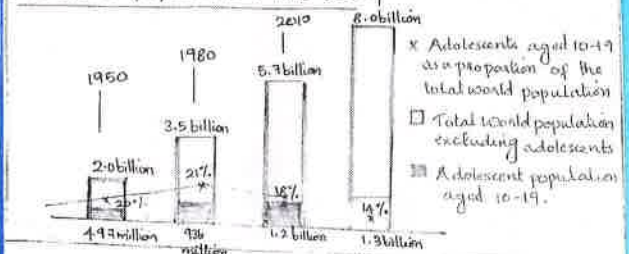 1950
1980
2010
2.0 billion
3.5 billion
5.7 billion
8.0 billion
20%
21%
18%
14%
497 million
936
million
1.2 billion
1.3 billion
x Adolescents aged 10-19
as a proportion of the
total world population
Total World population
excluding adolescents
Adolescent population
aged 10-19.